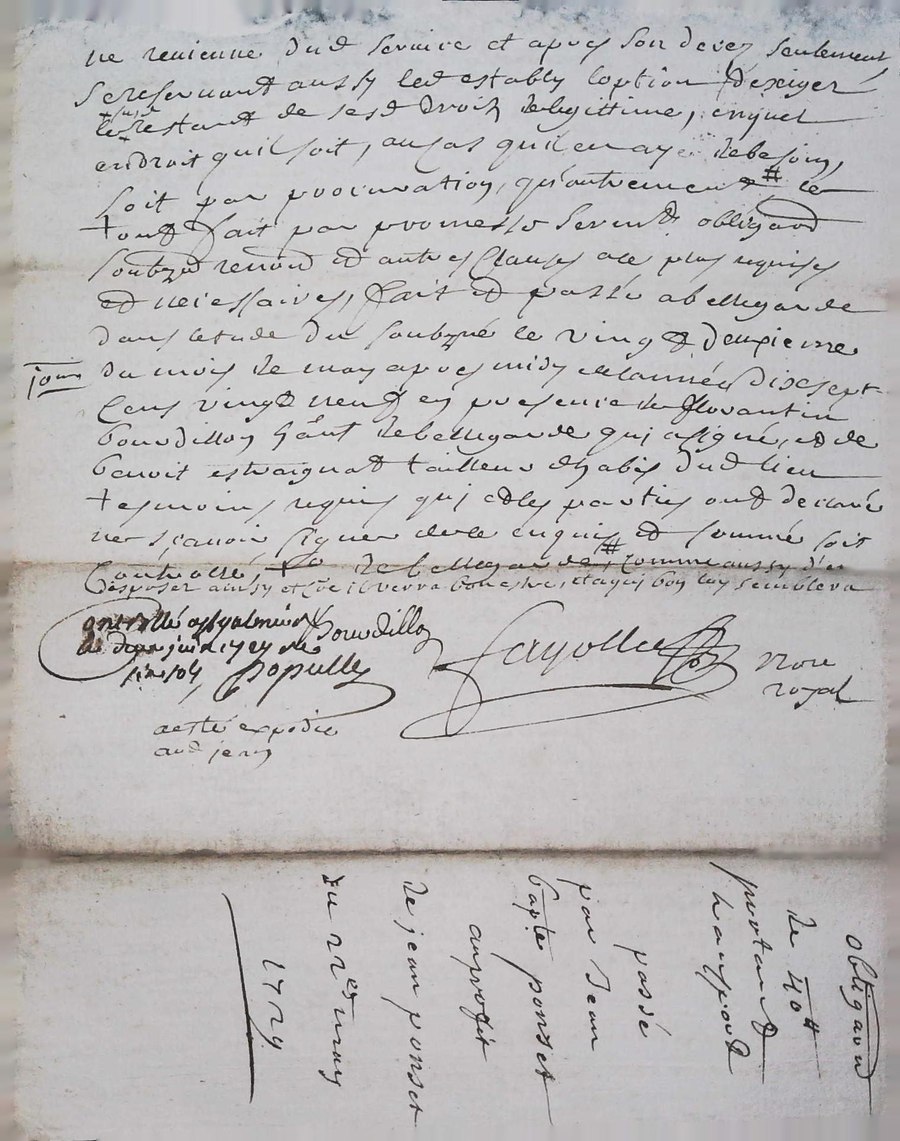 ne revienne dud service et apres son deces seulement
se reservant aussy led estably loption dexiger
le restant de sesd droits de legittime, en quel
endroit quil soit, au cas quil en aye de besoin,
soit par procuration, qu'autrement # le
tout fait par promesse serment obligaon
soubzon renon et autres clauses ale plus requises
et necessaires, fait et passé a bellegarde
dans letude du soubzné le vingt deuxieme
jour
du mois de may apres midy de lannée dixsept
cens vingt neuf en presence de florantin
bourdillon hânt de bellegarde qui a signé, et de
benoit estraignat tailleur dhabis dud lieu
tesmoins requis qui et les parties ont declaré
ne sçavoir signer de ce enquis et sommé soit
controllé, de bellegarde # comme aussy d'en
disposer ainsy et a qui bon luy semblera
Bourdillon
Fayolle
nore
royal
controllé a
juin 1729
Populle
a esté expedié
aud jean
obligaon
de 40#
portant
passé
par Jean
bapte ponset
au profit
de jean ponset
du 22es may
1729